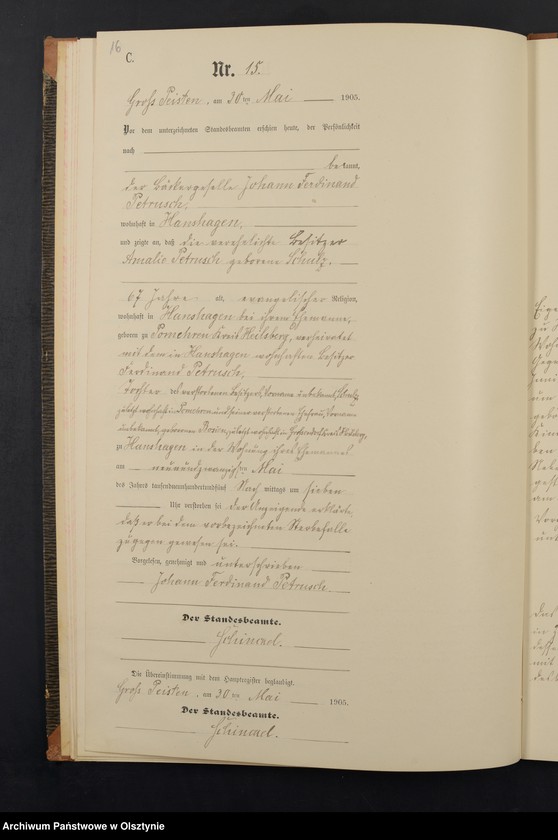 16
C.
Nr. 15.
Groß Peisten, am 30ten Mai 1905.
Vor dem unterzeichneten Standesbeamten erschien heute, der Persönlichkeit
nach
bekannt,
der Bäckergeselle Johann Ferdinand
Petrusch,
wohnhaft in Hanshagen,
und zeigte an, daß die verehelichte Besitzer
Amalie Petrusch geborene Schulz.
67 Jahre alt, evangelischer Religion,
wohnhaft in Hanshagen bei ihrem Ehemanne,
geboren zu Pomehren Kreis Heilsberg, verheiratet
mit dem in Hanshagen wohnhaften Besitzer
Ferdinand Petrusch,
Tochter verstorbenen Besitzers, Vorname unbekannt, Schulz
zuletzt wohnhaft in Pomehren und seiner verstorbenen Ehefrau, Vorname
unbekannt, geborenen zuletzt wohnhaft in
zu Hanshagen in der Wohnung ihres Ehemannes
am neunundzwanzigsten Mai
des Jahres tausendneunhundertundfünf Nachmittags um sieben
Uhr verstorben sei. Der Anzeigende erklärte,
daß er bei dem vorbezeichneten Sterbefalle
zugegen gewesen sei.
Vorgelesen, genehmigt und unterschrieben
Johann Ferdinand Petrusch
Der Standesbeamte.
Die Übereinstimmung mit dem Hauptregister beglaubigt.
Groß Peisten, am 30ten Mai 1905.
Der Standesbeamte.
Archiwum Państwowe w Olsztynie